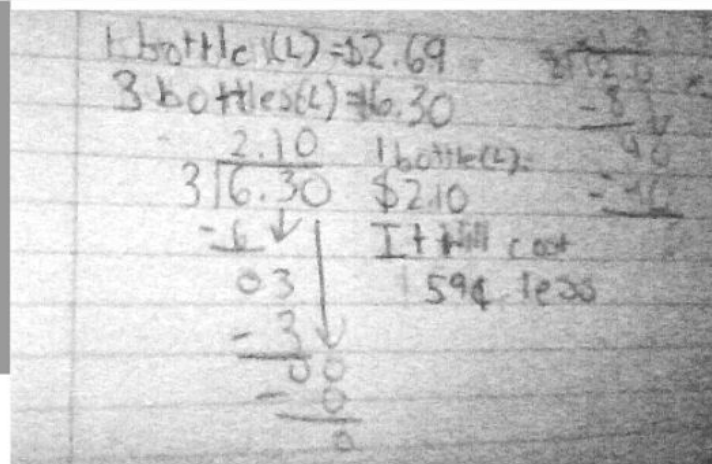 1 bottle (L) = $2.69
3 bottles (L) = $6.30
2.10
3 6.30
- 6
03
- 3
00
- 0
0
1 bottle (L) =
$2.10
It will cost
59¢ less
- 8
40